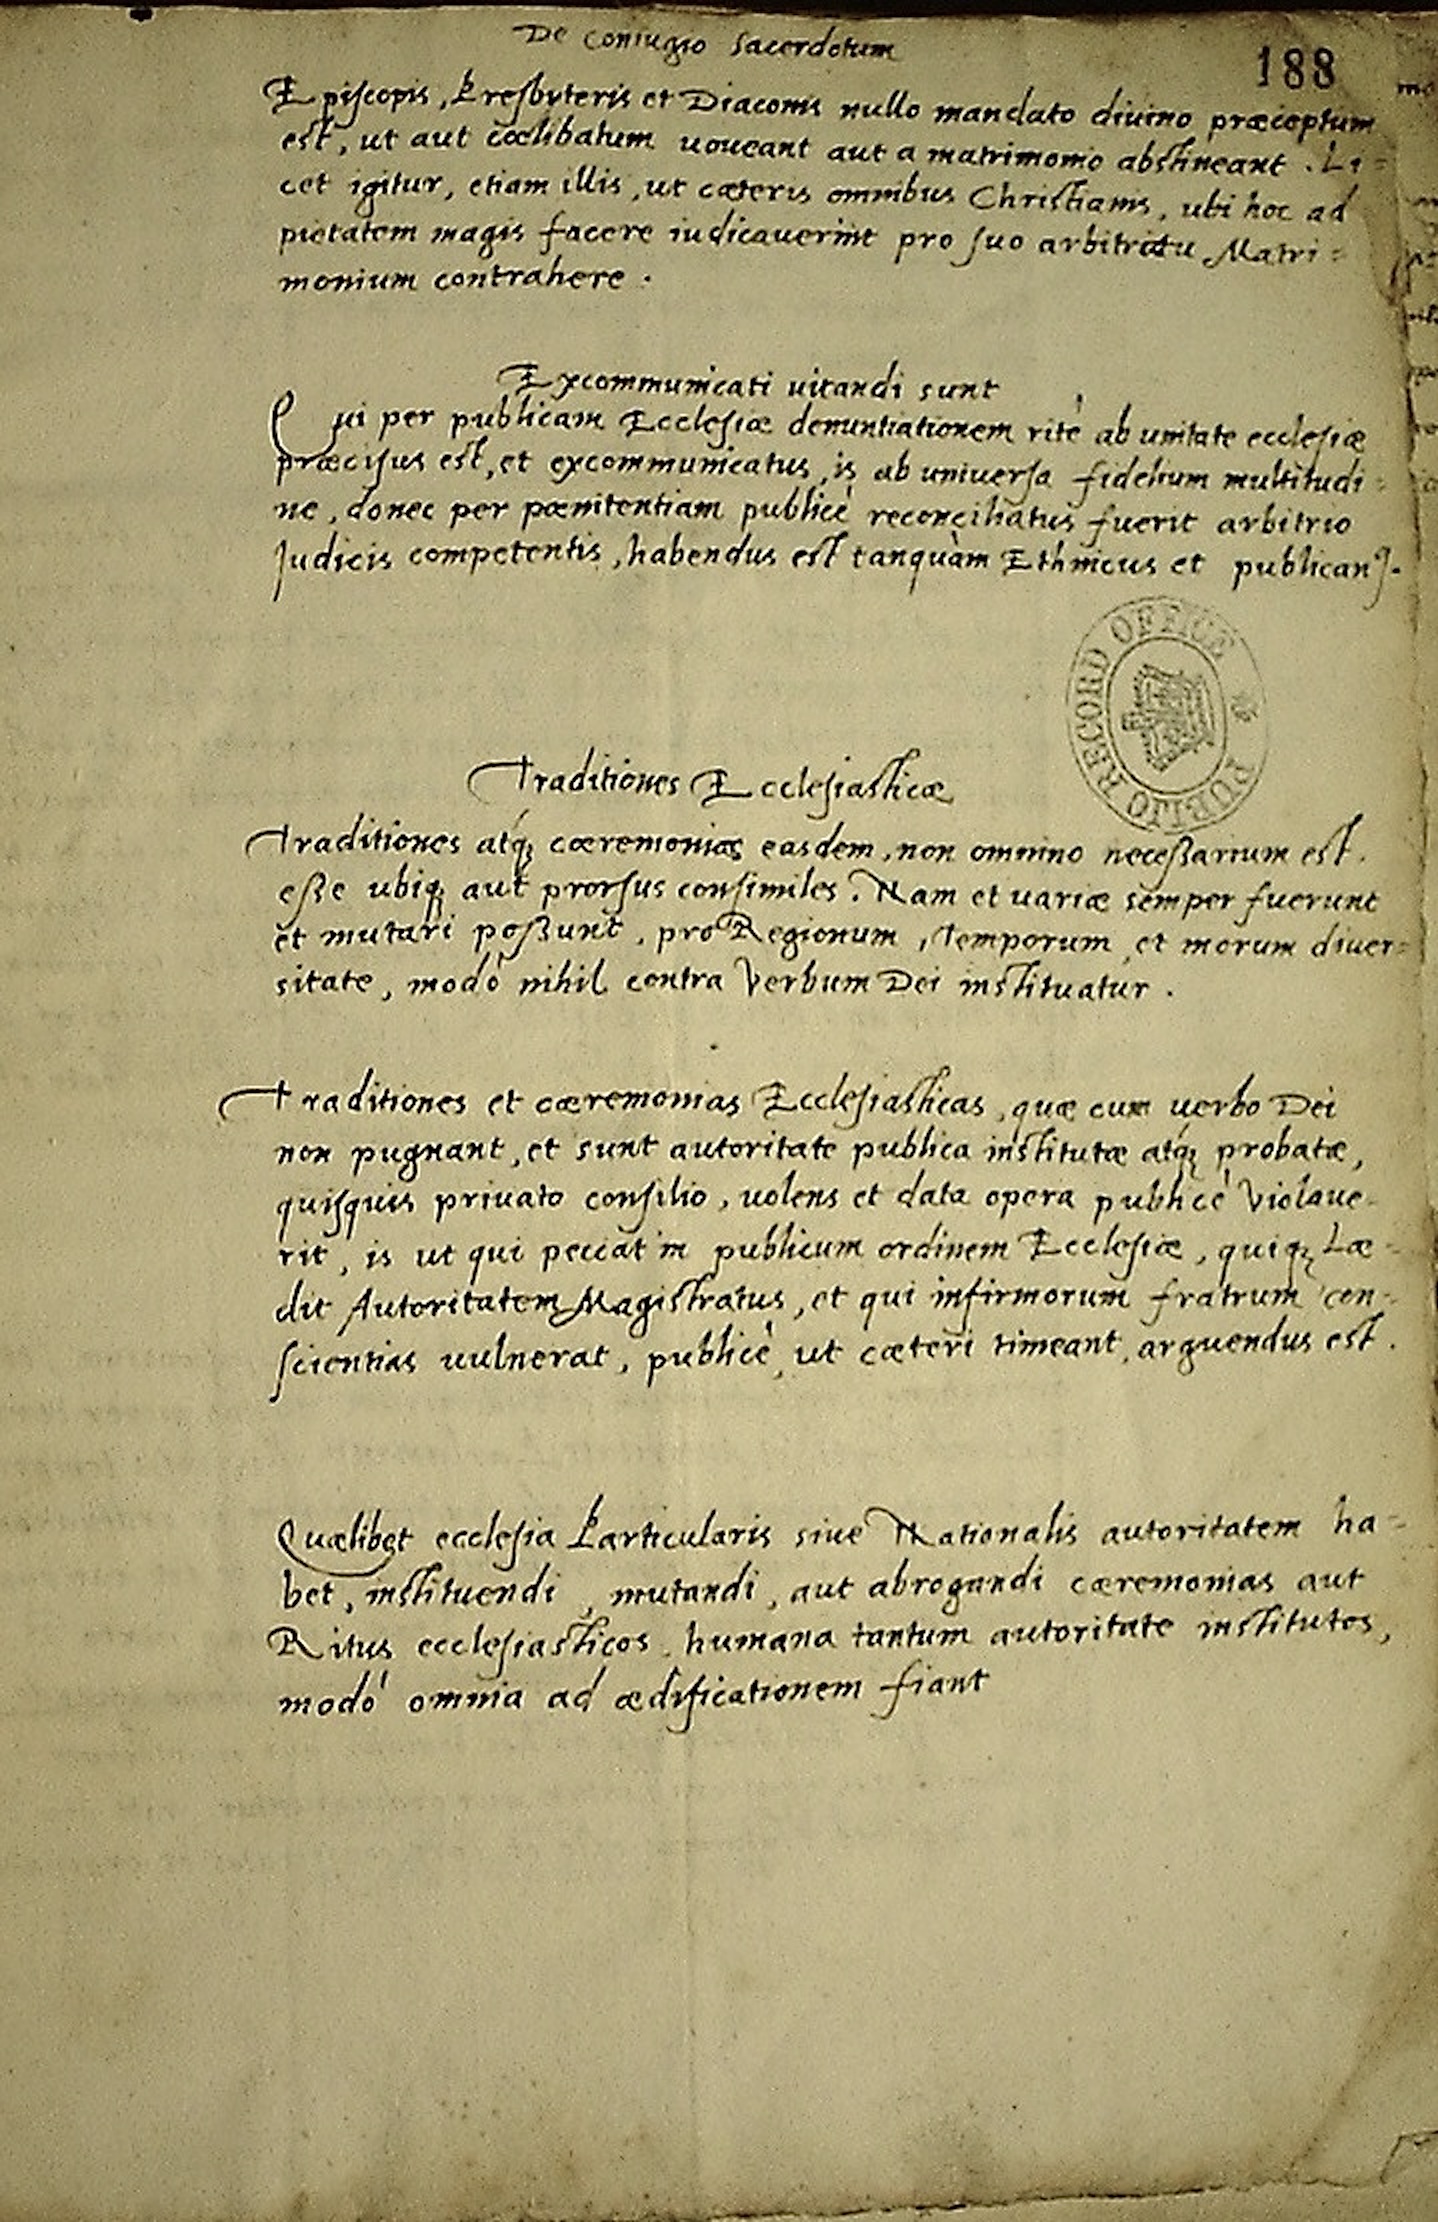 De coniugio sacerdotum
188
Episcopis, Presbyteris et Diaconis nullo mandato diuino præceptum
est, ut aut cœlibatum uoueant aut a matrimonio abstineant. Li=
cet igitur, etiam illis, ut cæteris omnibus Christianis, ubi hoc ad
pietatem magis facere iudicauerint pro suo arbitratu Matri=
monium contrahere.
Excommunicati uitandi sunt
Qui per publicam Ecclesiæ denuntiationem ritè ab unitate ecclesiæ
præcisus est, et excommunicatus, is ab uniuersa fidelium multitudi=
ne, donec per pœnitentiam publicè reconciliatus fuerit arbitrio
Iudicis competentis, habendus est tanquàm Ethnicus et publicanꝰ.
OFFICE
RECORD
PUBLIC
Traditiones Ecclesiasticæ
Traditiones atq́ꝫ cæremonias easdem, non omnino necessarium est
esse ubiqꝫ aut prorsus consimiles. Nam et uariæ semper fuerunt
et mutari possunt, pro Regionum, Temporum, et morum diuer=
sitate, modò nihil contra Verbum Dei instituatur.
Traditiones et cæremonias Ecclesiasticas, quæ cum uerbo Dei
non pugnant, et sunt autoritate publica institutæ atq́ꝫ probatæ,
quisquis priuato consilio, uolens et data opera publicè Violaue-
rit, is ut qui peccat in publicum ordinem Ecclesiæ, quiqꝫ Læ-
dit Autoritatem Magistratus, et qui infirmorum fratrum con-
scientias uulnerat, publicè, ut cæteri timeant, arguendus est.
Quælibet ecclesia Particularis siue Nationalis autoritatem ha-
bet, instituendi, mutandi, aut abrogandi cæremonias aut
Ritus ecclesiasticos, humana tantum autoritate institutos,
modò omnia ad ædificationem fiant